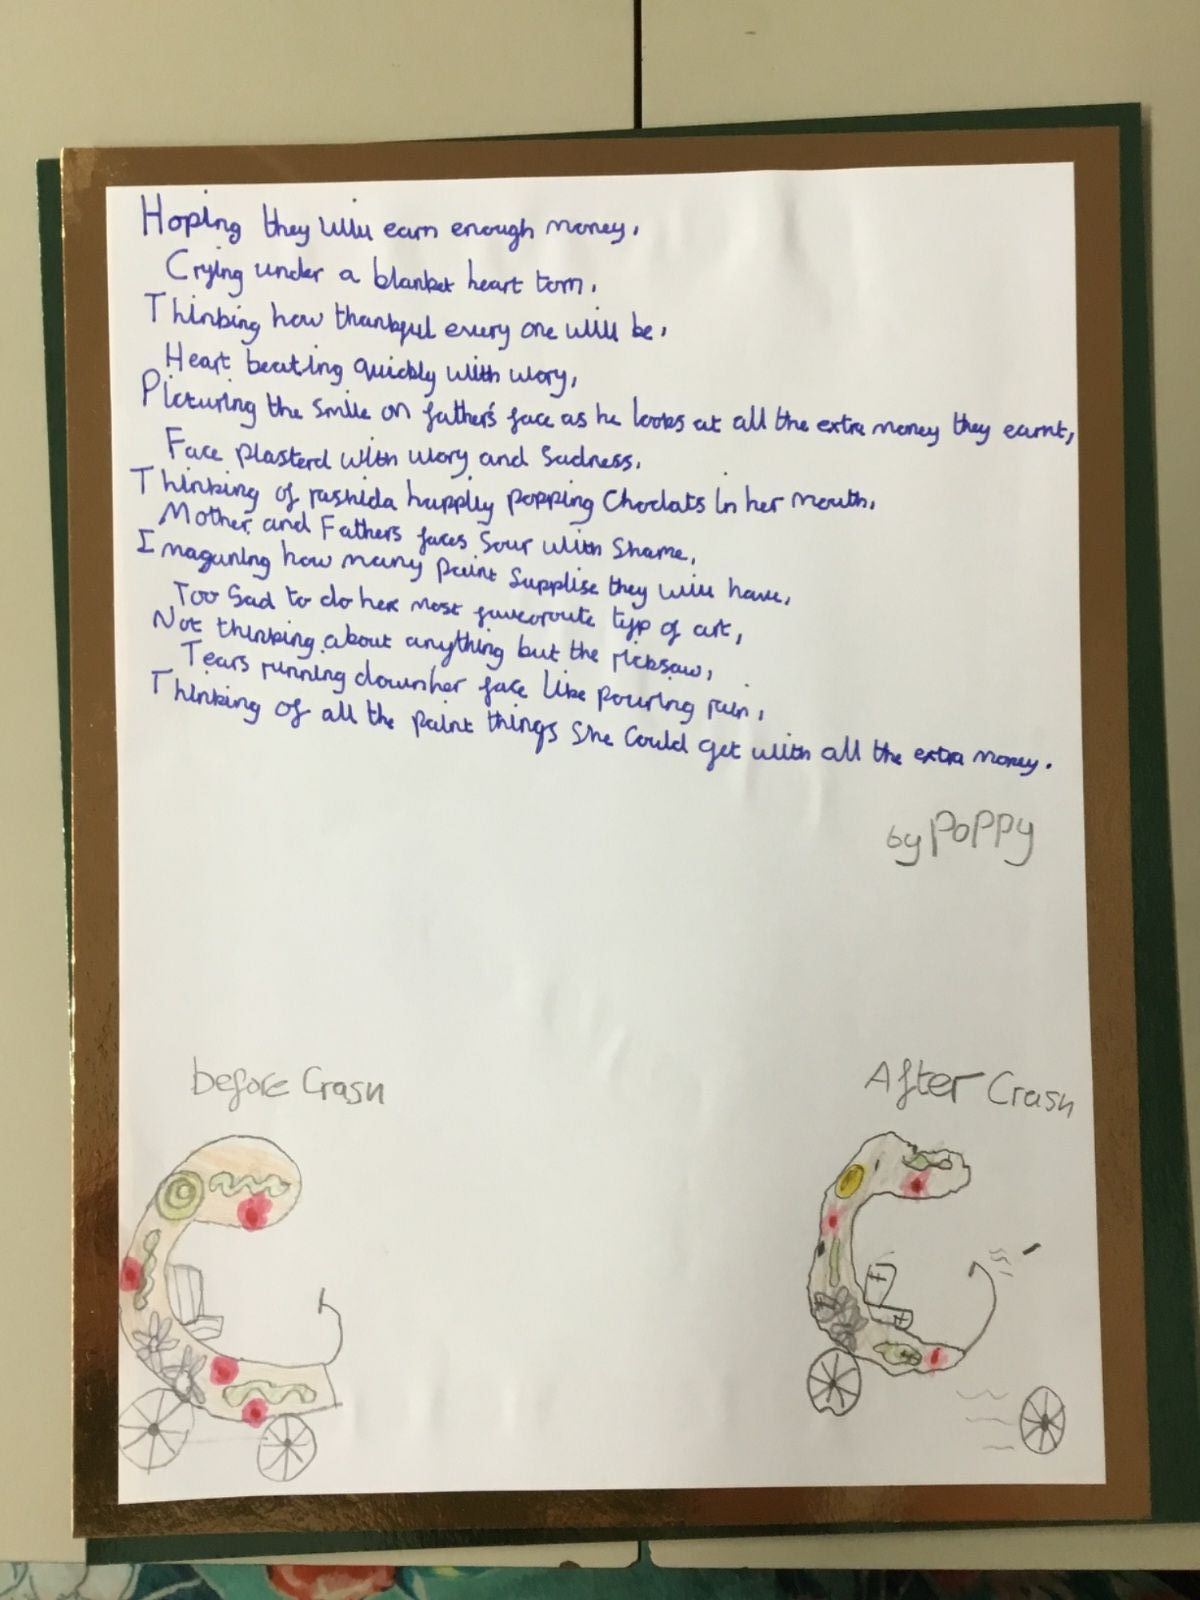 Hoping they will earn enough money,
Crying under a blanket heart torn,
Thinking how thankful every one will be,
Heart beating quickly with wory,
Picturing the smile on father's face as he looks at all the extra money they earnt,
Face plasterd with wory and sadness,
Thinking of rashida happliy popping Choclats in her mouth,
Mother and Fathers faces sour with shame,
Imaguning how many paint supplise they will have,
Too sad to do her most favcoroute type of art,
Not thinking about anything but the ricksaw,
Tears running down her face like pouring rain,
Thinking of all the paint things she could get with all the extra money.
by POPPY
before Crash
After Crash